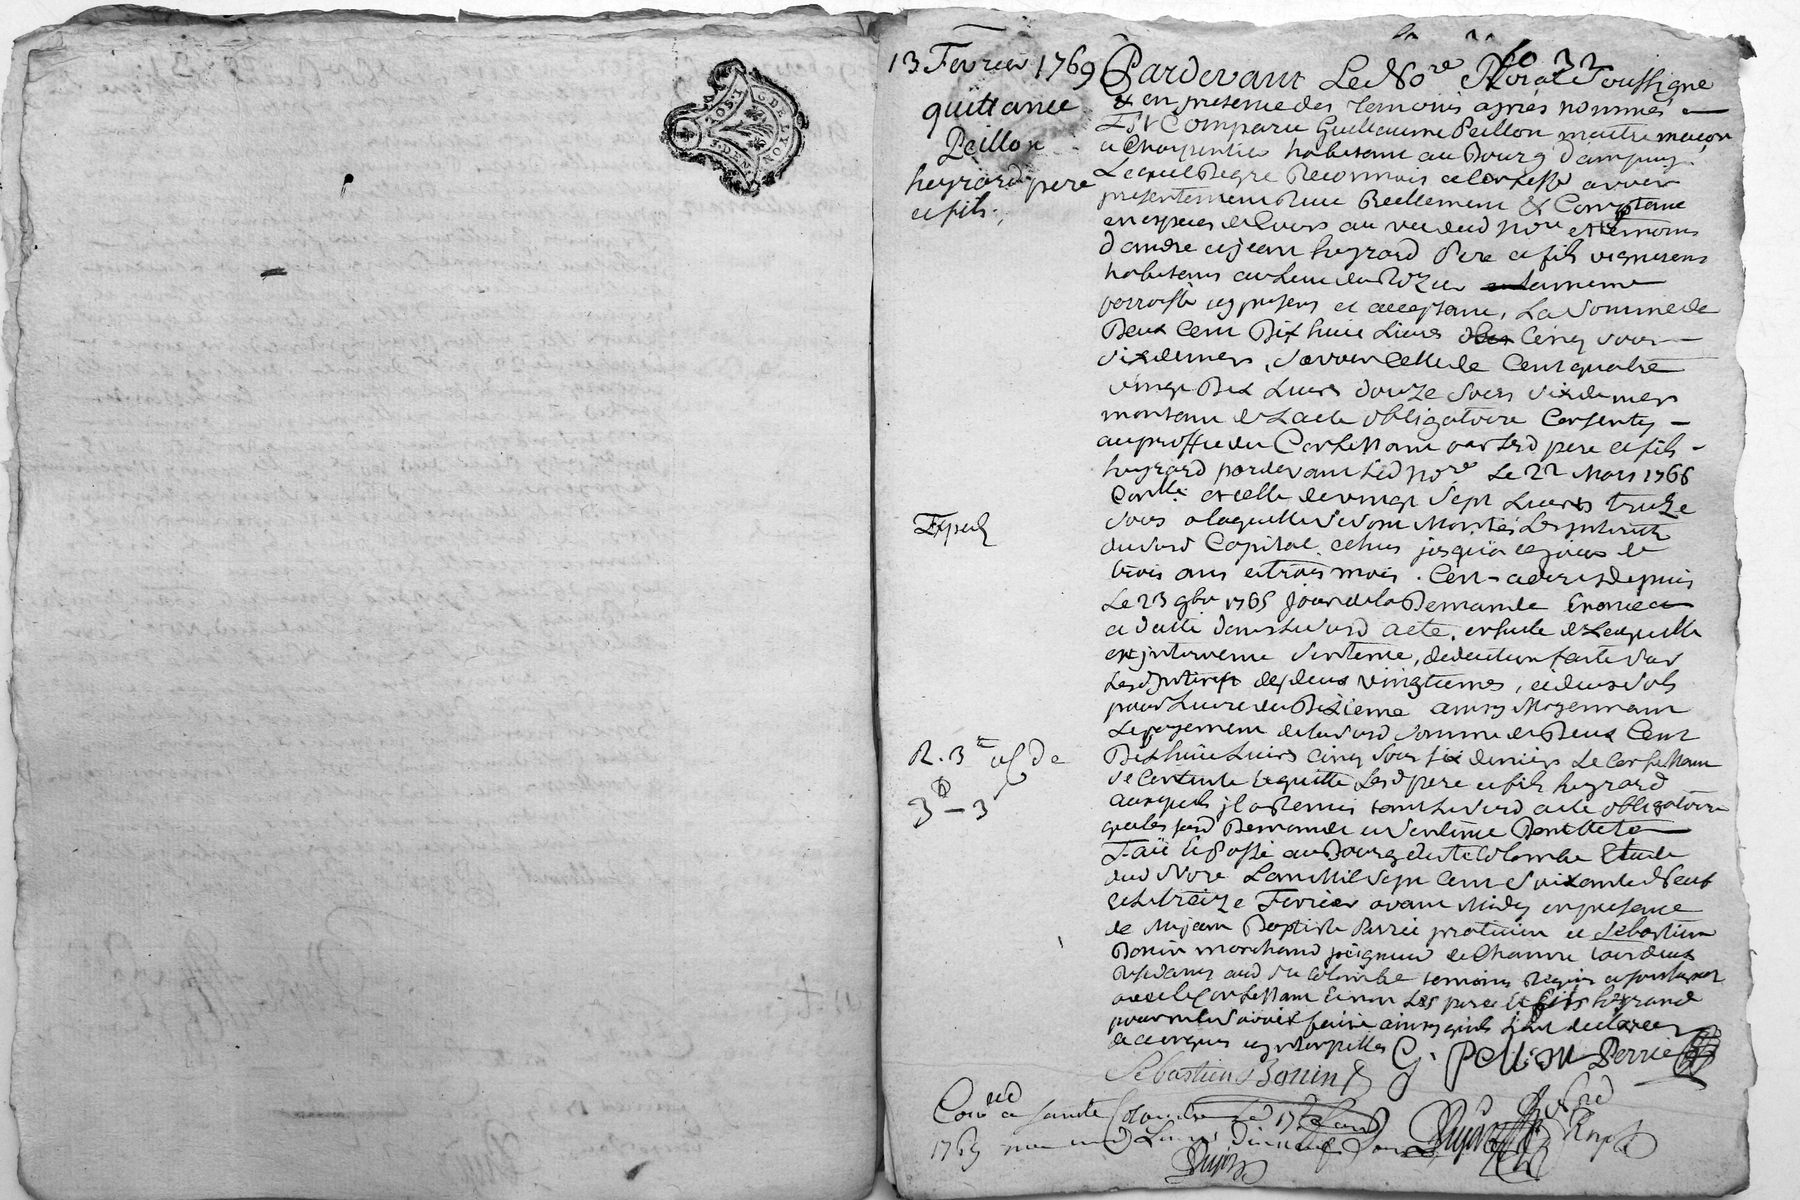 G. DE LYON
2. SOLS
4. DEN
13 Fevrier 1769
quittance
Peillon
heyrard pere
et fils.
Exped
R. 3
3 - 3
Pardevant Le No.re Roial Soussigné
& en presence des temoins apres nommés
Est Comparu Guillaume Peillon maitre macon
et Charpentier habitant au Bourg d'ampuis
Lequel De gre Reconnois et Confesse avoir
presentement Receu Reellement & Comptant
en especes de Cours au veu dud No.re et temoins
d'andré et jean heyrard Pere et fils vignerons
habitans au Lieu du Rozier meme
parroisse icy presens et acceptans, La Somme de
Deux Cent Dix huit Livres Cinq sous
six deniers, savoir Celle de Cent quatre
vingt Dix Livres douze sous six deniers
montant de L'acte obligatoire Consenty
au proffit du Confessant par Lesd pere et fils
heyrard pardevant Led No.re Le 22 Mars 1766
Conllé et celle de vingt sept Livres treize
sous a laquelle se sont Montés Les interets
dud Capital echus jusqu'a ce jour de
trois ans et trois mois. C'est a dire depuis
Le 23 9bre 1765 jour de la Demande Enoncée
et dattée dans Led acte, ensuite de Laquelle
est intervenue sentence, deduction faite sur
Lesd interets des deux vingtiemes, et deux sols
pour Livre du Dixieme ainsy Moyennant
Le payement de lad somme de Deux Cent
Dix huit Livres Cinq sous six deniers Le Confessant
se Contente & quitte Lesd pere et fils heyrard
auxquels il a Remis tant Led acte obligatoire
que les Demande et Sentence
Fait & Passé au Bourg de Ste Colombe Etude
dud No.re L'an Mil Sept Cent Soixante Neuf
& Le treize Fevrier avant Midy en presence
de M.e jean Baptiste Perrié praticien et Sebastien
Bonin marchand peigneur de Chanvre tous deux
Residants aud Ste Colombe temoins Requis et soussignés
avec le Confessant & non Les pere & fils heyrard
pour ne le savoir faire ainsy qu'ils L'ont declaré
de ce enquis et interpellés G. Pellion Perrié
Sebastien Bonin
Con.lé a Sainte Colombe Led
1769